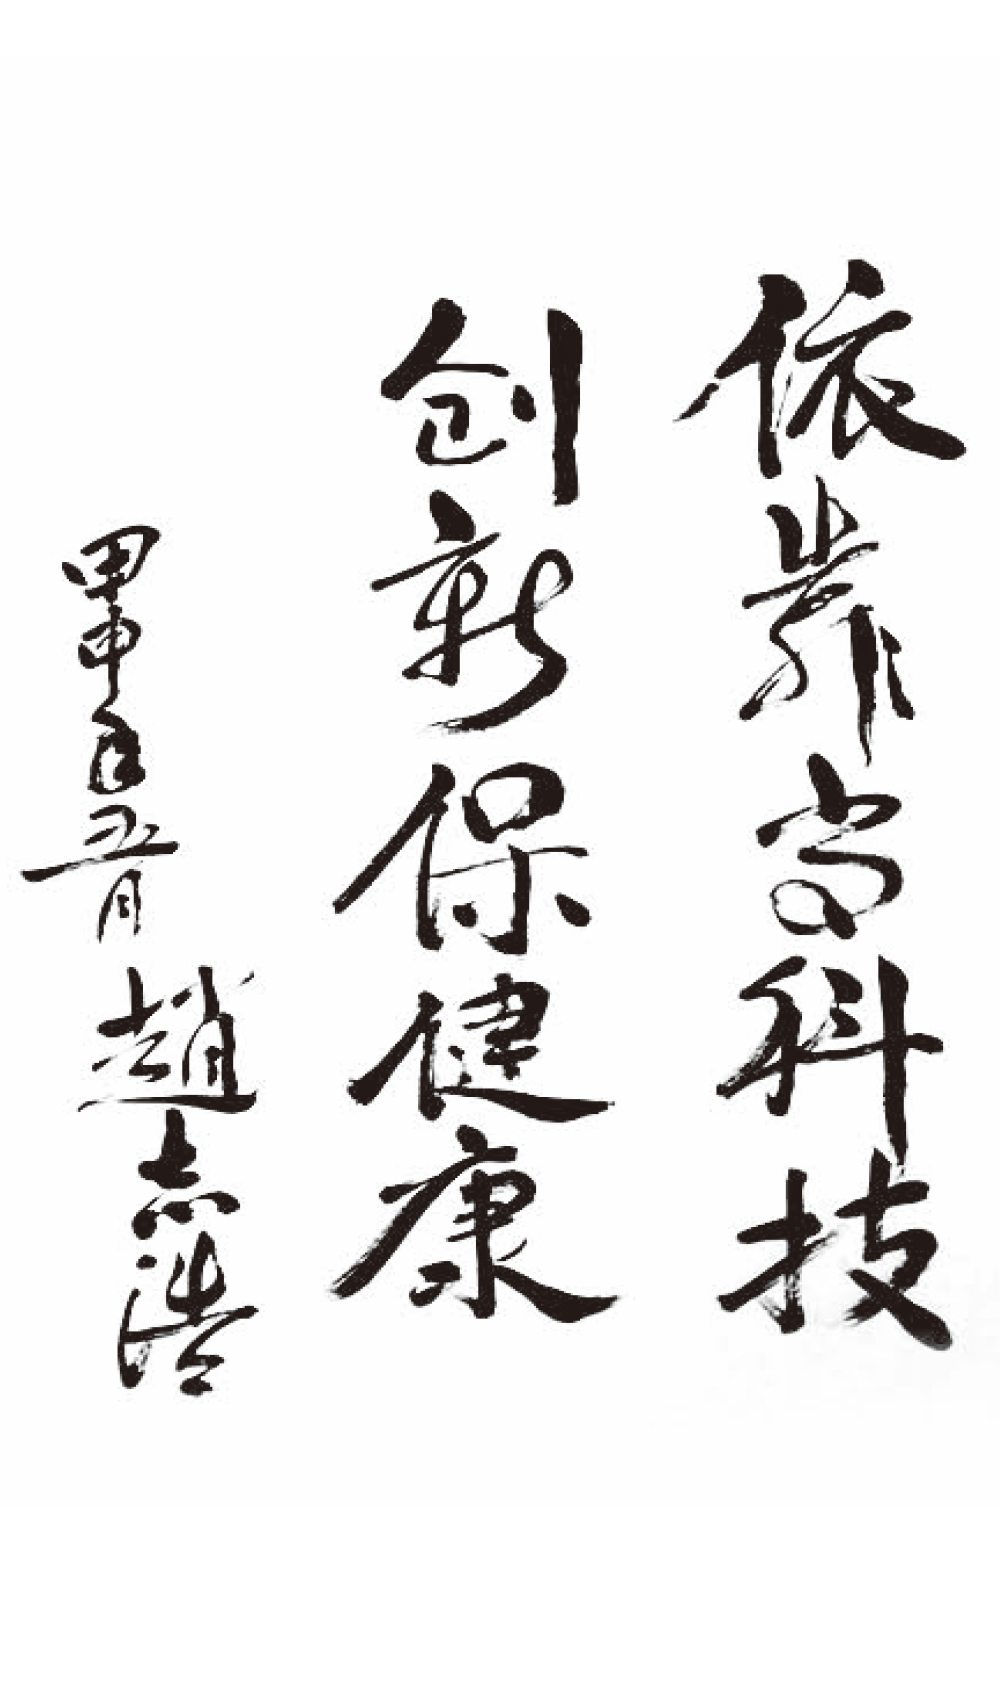 依靠高科技
创新保健康
甲申年五月 趙志浩